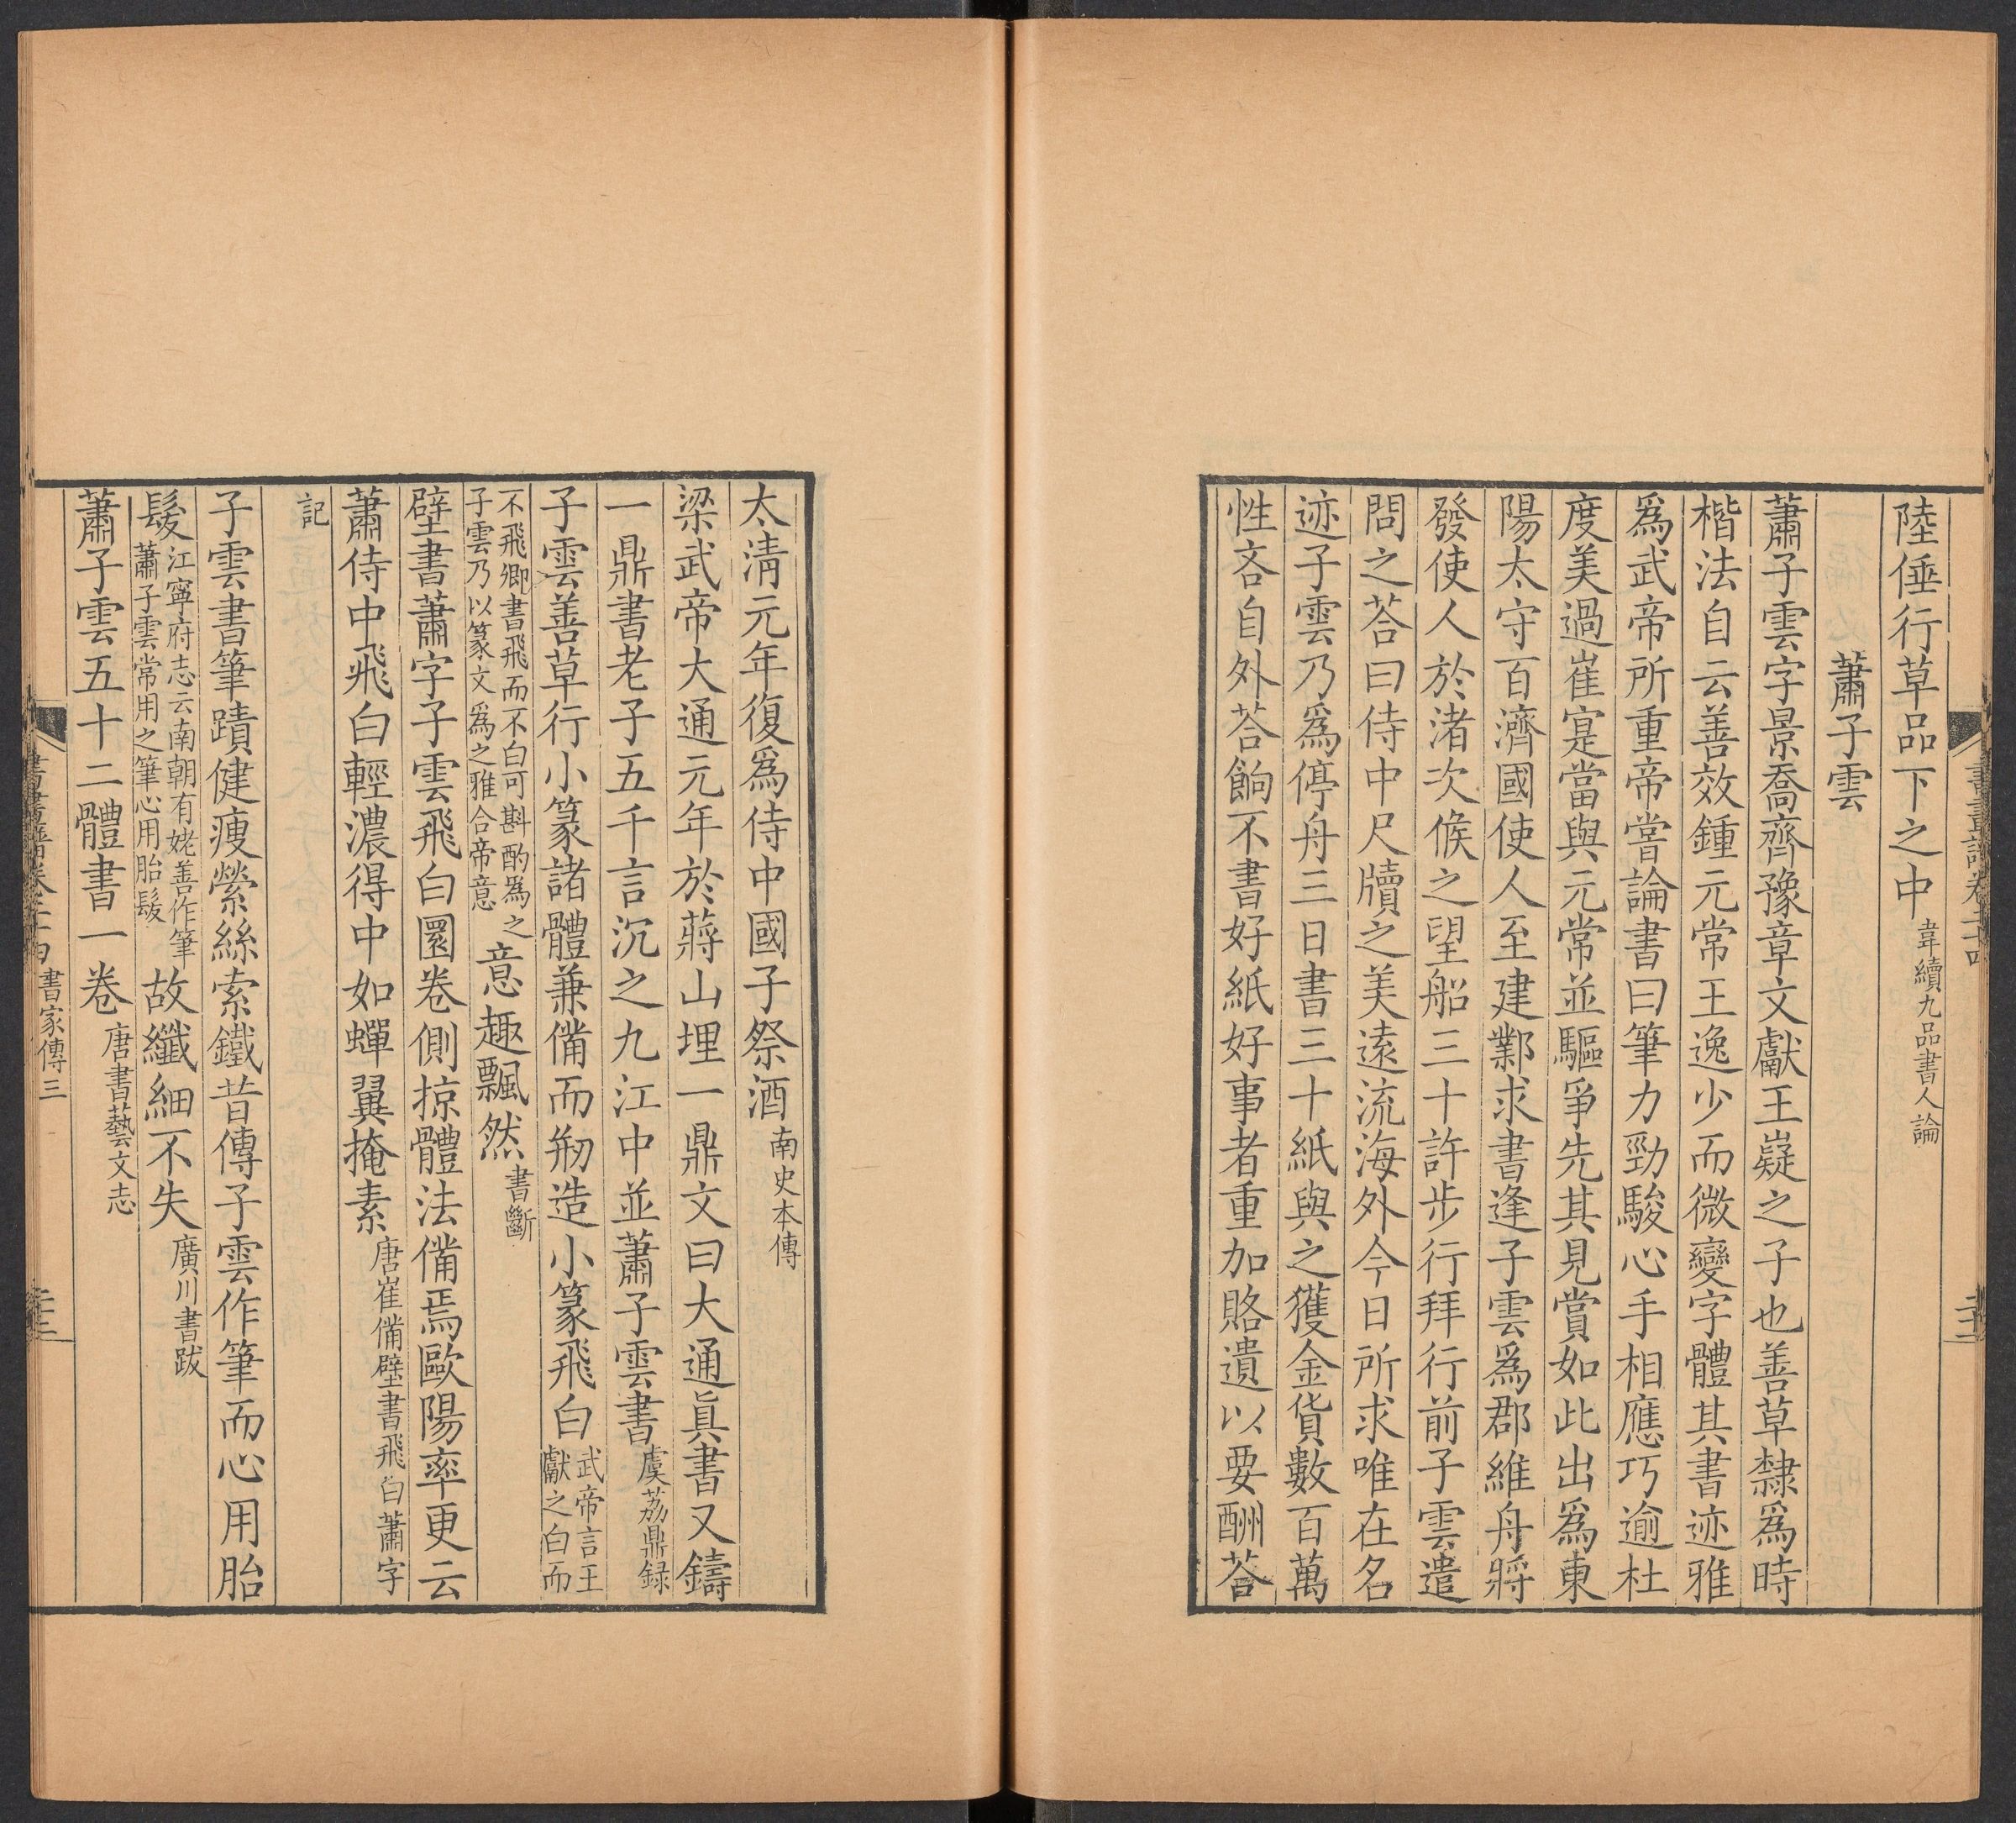 陸倕行草品下之中韋續九品書人論
蕭子雲
蕭子雲字景喬齊豫章文獻王嶷之子也善草隸爲時
楷法自云善效鍾元常王逸少而微變字體其書迹雅
爲武帝所重帝嘗論書曰筆力勁駿心手相應巧逾杜
度美過崔寔當與元常並驅爭先其見賞如此出爲東
陽太守百濟國使人至建鄴求書逢子雲爲郡維舟將
發使人於渚次候之望船三十許步行拜行前子雲遣
問之荅曰侍中尺牘之美遠流海外今日所求唯在名
迹子雲乃爲停舟三日書三十紙與之獲金貨數百萬
性吝自外荅餉不書好紙好事者重加賂遺以要酬荅
太淸元年復爲侍中國子祭酒南史本傳
梁武帝大通元年於蔣山埋一鼎文曰大通眞書又鑄
一鼎書老子五千言沉之九江中並蕭子雲書虞荔鼎錄
子雲善草行小篆諸體兼備而剏造小篆飛白武帝言王
獻之白而
不飛卿書飛而不白可斟酌爲之
子雲乃以篆文爲之雅合帝意
意趣飄然書斷
壁書蕭字子雲飛白圜卷側掠體法備焉歐陽率更云
蕭侍中飛白輕濃得中如蟬翼掩素唐崔備壁書飛白蕭字
記
子雲書筆蹟健瘦縈絲索鐵昔傳子雲作筆而心用胎
髮江寧府志云南朝有姥善作筆
蕭子雲常用之筆心用胎髮
故纖細不失廣川書跋
蕭子雲五十二體書一卷唐書藝文志
書家傳三